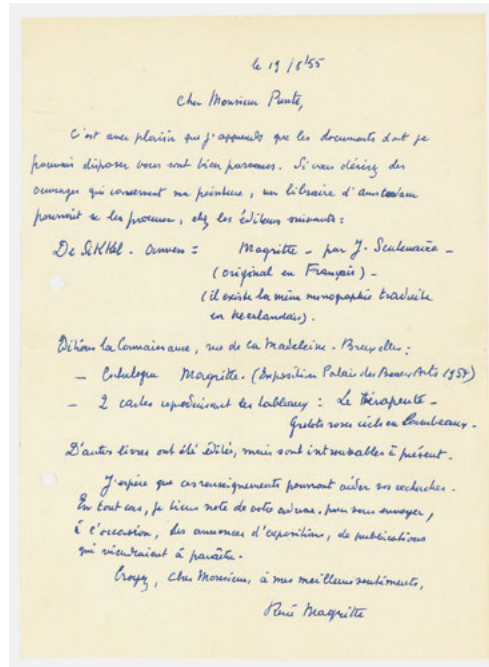 le 19/8/55
Cher Monsieur Punte,
C'est avec plaisir que j'apprends que les documents dont je
pouvais disposer vous sont bien parvenus. Si vous désirez des
ouvrages qui concernent ma peinture, un libraire d'Amsterdam
pourrait se les procurer, chez les éditeurs suivants :
De Sikkel - Anvers = Magritte - par J. Scutenaire -
(original en Français) -
(il existe la même monographie traduite
en néerlandais).
Editions la Connaissance, rue de la Madeleine - Bruxelles :
- Catalogue Magritte. (Exposition Palais des Beaux Arts 1954)
- 2 cartes reproduisant les tableaux : Le Thérapeute -
Grelots roses ciels en lambeaux -
D'autres livres ont été édités, mais sont introuvables à présent.
J'espère que ces renseignements pourront aider vos recherches.
En tout cas, je tiens note de votre adresse pour vous envoyer,
à l'occasion, des annonces d'expositions, de publications
qui viendraient à paraître.
Croyez, cher Monsieur, à mes meilleurs sentiments,
René Magritte